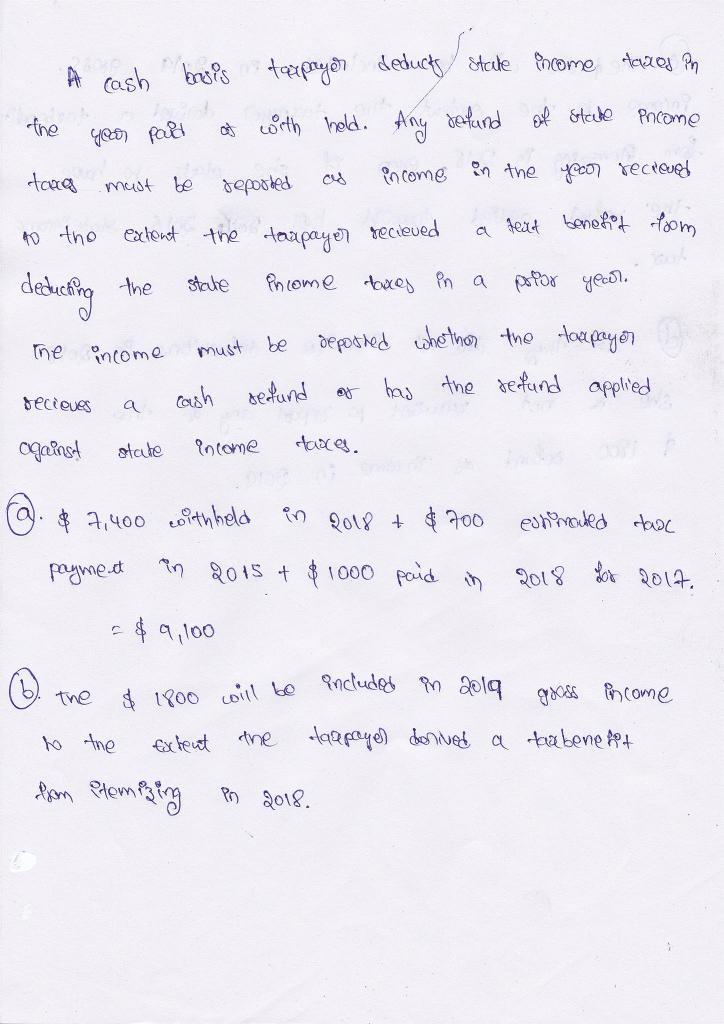 A cash basis taxpayer deducts state income taxes in
the year paid or with held. Any refund of state income
taxes must be reported as income in the year recieved
to the extent the taxpayer recieved a text benefit from
deducting the state income taxes in a prior year.
The income must be reported whether the taxpayer
recieves a cash refund or has the refund applied
against state income taxes.
(a). $ 7,400 withheld in 2018 + $ 700 estimated tax
payment in 2015 + $ 1000 paid in 2018 for 2017.
= $ 9,100
(b). The $ 1800 will be included in 2019 gross income
to the extent the taxpayer derived a taxbenefit
from itemizing in 2018.